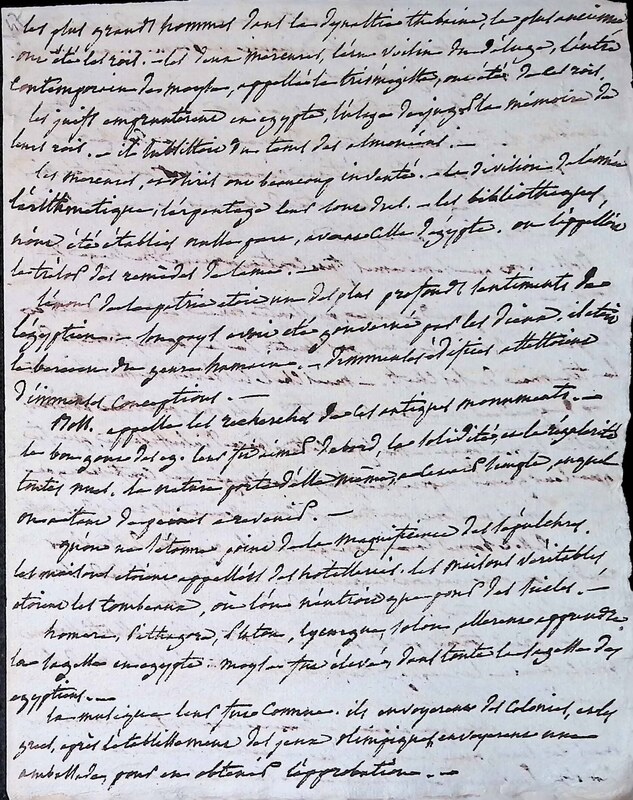 les plus grands hommes dans la dynastie thebaine, la plus ancienne
ont été les rois. - les deux mercures, l'un voisin du déluge, l'autre
contemporain de moyse, appellé le trismégiste, ont été de ces rois.
les juifs emprunterent en egypte, l'usage de juger la mémoire de
leurs rois. - il subsistoit du tems des almonéens. -
les mercures, et osiris ont beaucoup inventé. - la division de l'année
l'arithmétique, l'arpentage leur sont dus. - les bibliotheques,
n'ont été établies nulle part, avant celle d'egypte. on l'appelloit
le trésor des remèdes de l'ame. -
l'amour de la patrie étoit un des plus profonds sentiments de
l'égyptien. - son pays avoit été gouverné par les dieux, il étoit
le berceau du genre humain. - d'immenses édifices attestoient
d'immenses conceptions. -
Boss. appelle les recherches de ces antiques monuments. -
le bon gout des eg. leur fit aimer d'abord, la solidité, et la regularité
toutes nues. la nature porte d'elle même, à cet air simple, auquel
on a tant de peine à revenir. -
qu'on ne s'étonne point de la magnificence des sépulchres.
les maisons étoient appellées des hotelleries. les maisons véritables
étoient les tombeaux, où l'on n'entroit que pour des siecles. -
homere, Pithagore, Platon, lycurgue, solon, allerent apprendre
la sagesse en egypte. moyse fut élevé, dans toute la sagesse des
egyptiens. -
la musique leur fut connue. ils envoyerent des colonies, et les
grecs, après l'établissement des jeux olimpiques, envoyerent une
ambassade, pour en obtenir l'approbation. -